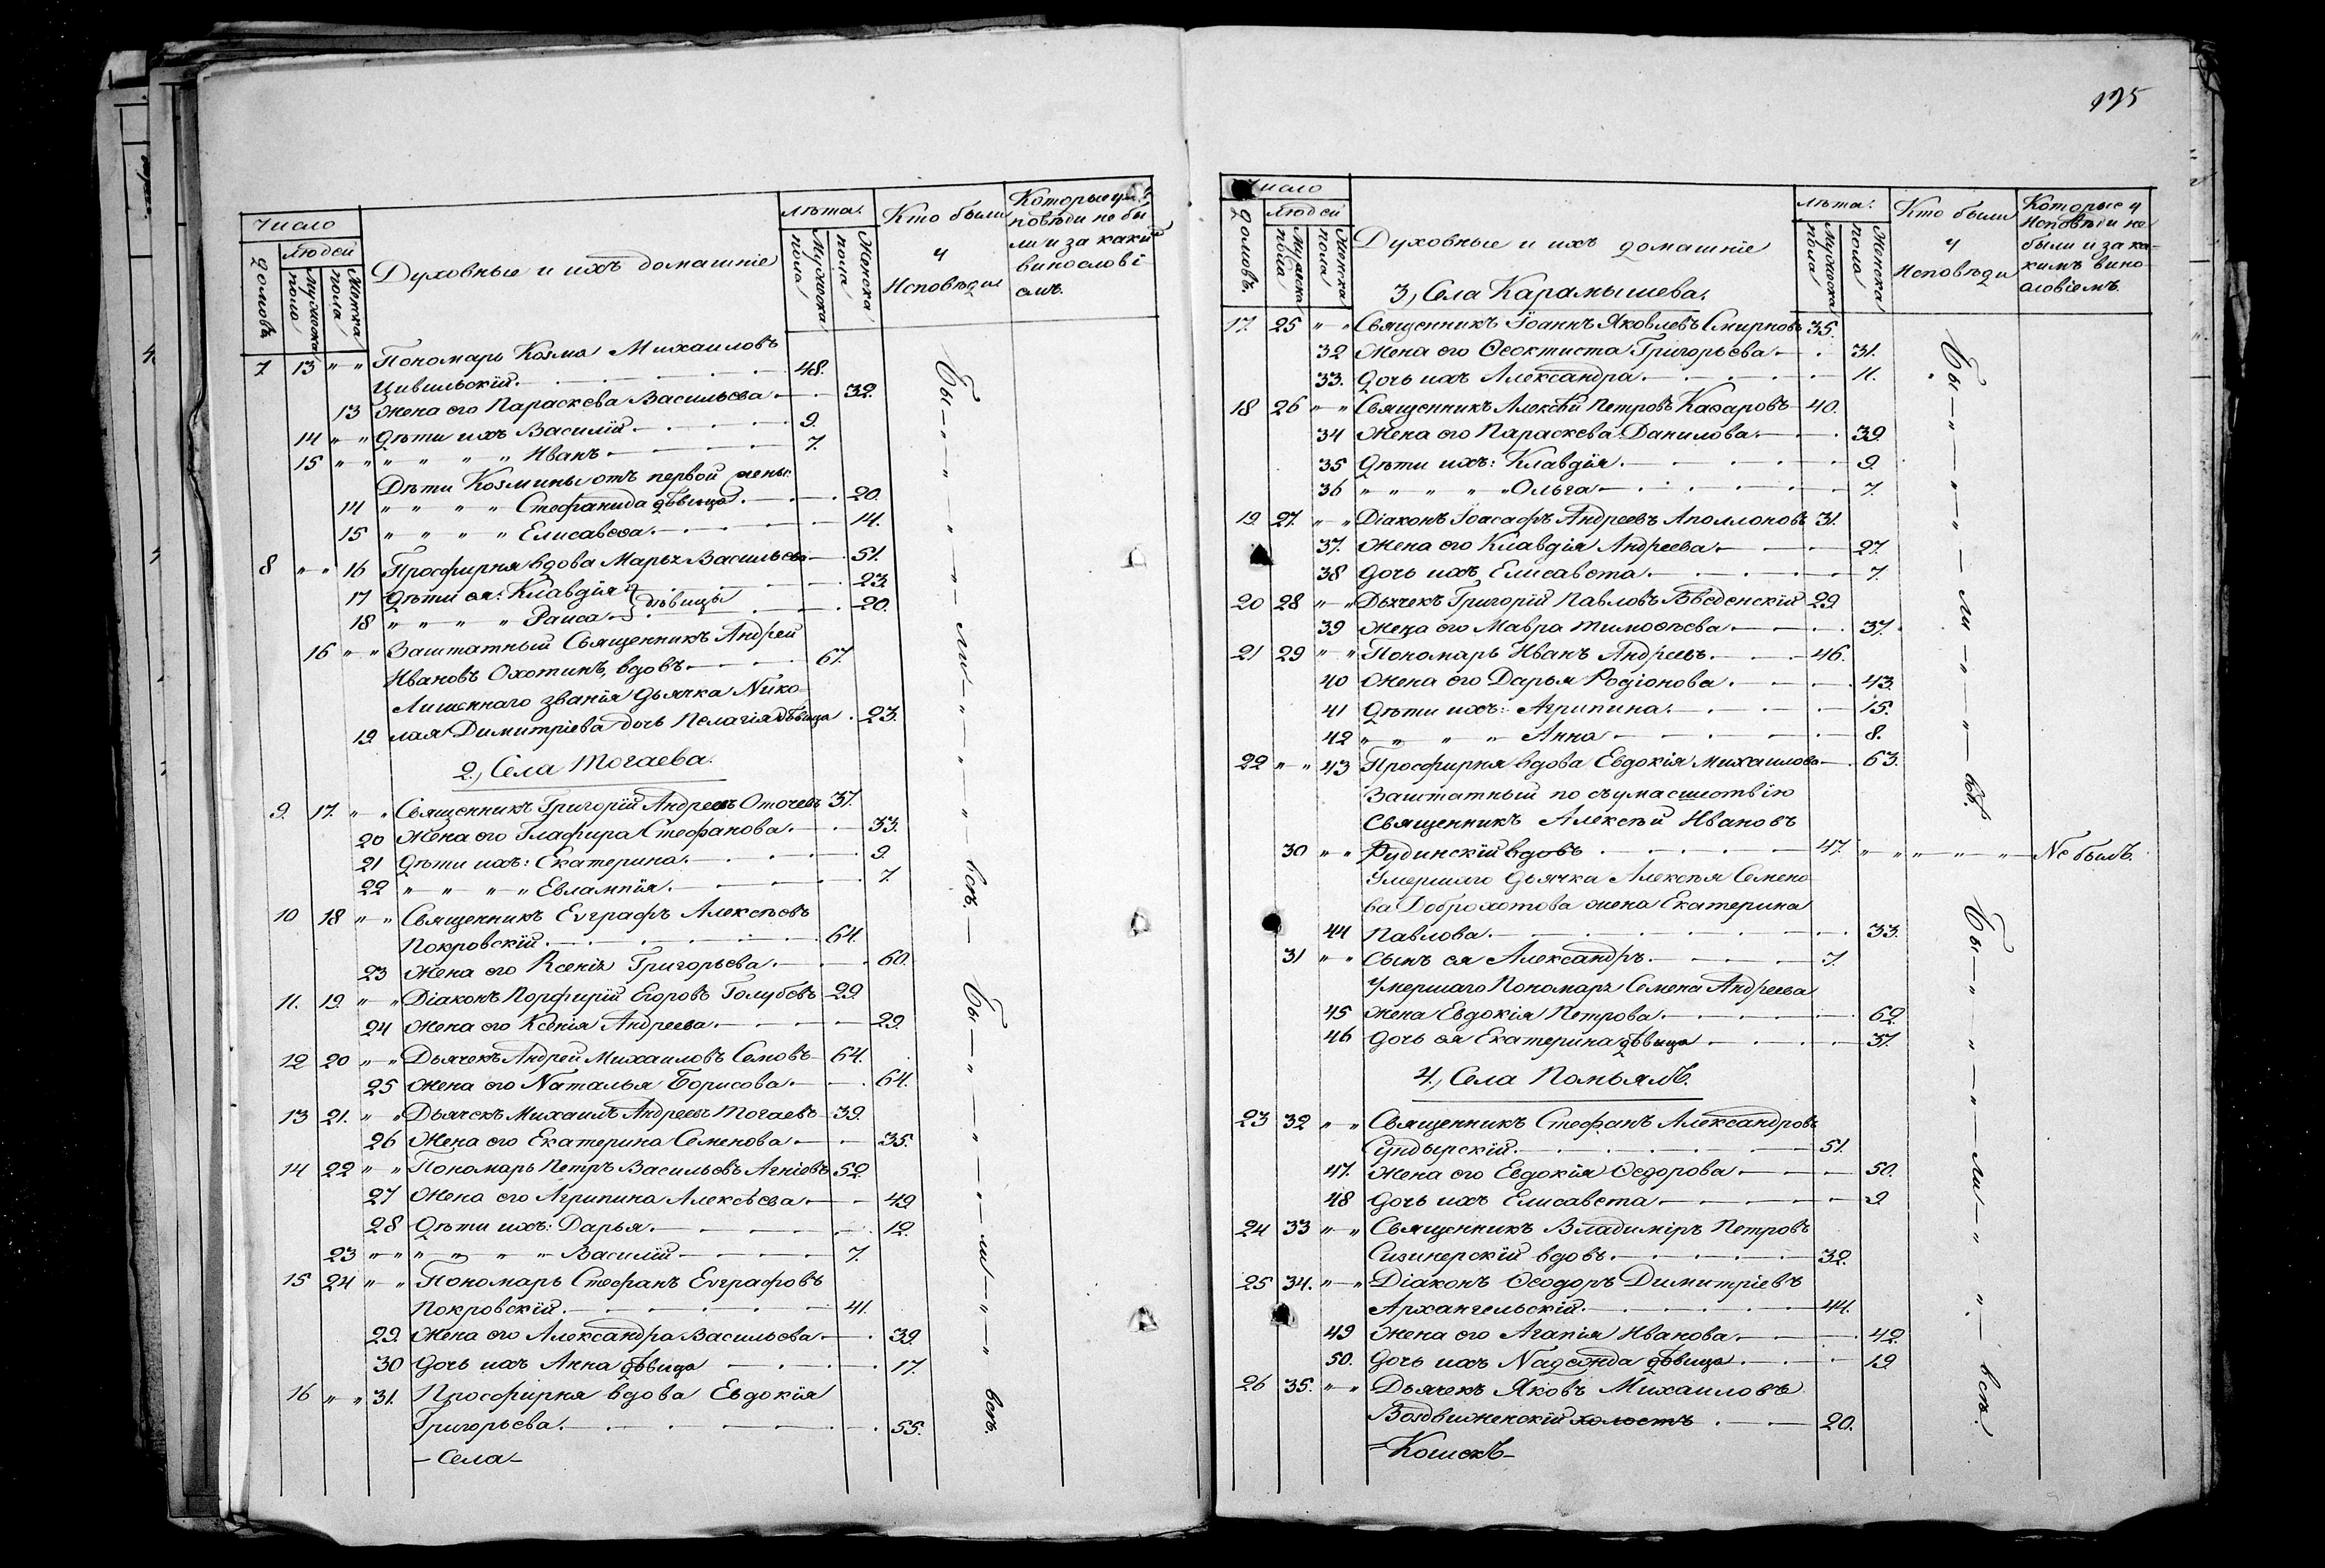 Число
Людей
Домовъ
Мужеска пола
Женска пола
Духовные и ихъ домашнiе
Лѣта.
Мужеска пола
Женска пола
Кто были у Исповѣди
Которые у Исповѣди не были и за какимъ винословiемъ.
7. 13 " " Пономарь Козма Михаиловъ
Цивильскiй. 48.
13 Жена его Параскева Васильева 32.
14 " " Дѣти ихъ Василiй 9.
15 " " " " " " Иванъ 7.
Дѣти Козмины отъ первой жены:
14 " " " " Стефанида дѣвица 20.
15 " " " " Елисавета 14.
8 " " 16 Просфирня вдова Марья Васильева 51.
17 Дѣти ея: Клавдiя } дѣвицы 23.
18 " " " " Раиса 20.
16 " " Заштатный Священникъ Андрей
Ивановъ Охотинъ, вдовъ 67.
Лишеннаго званiя дьячка Нико
19 лая Димитрiева дочь Пелагiя дѣвица 23.
2, Села Тогаева.
9. 17. " " Священникъ Григорiй Андреевъ Оточевъ 37.
20 Жена его Глафира Стефанова 33.
21 Дѣти ихъ: Екатерина 9.
22 " " " " Евлампiя 7.
10 18 " " Священникъ Евграфъ Алексѣевъ
Покровскiй 64.
23 Жена его Ксенiя Григорьева 60.
11. 19. " " Дiаконъ Порфирiй Егоровъ Голубевъ 29.
24 Жена его Ксенiя Андреева 29.
12 20 " " Дьячекъ Андрей Михаиловъ Семовъ 64.
25 Жена его Наталья Борисова 64.
13 21. " " Дьячекъ Михаилъ Андреевъ Тогаевъ 39.
26 Жена его Екатерина Семенова 35.
14 22 " " Пономарь Петръ Васильевъ Агнiевъ 52.
27 Жена его Агрипина Алексѣева 49.
28 Дѣти ихъ: Дарья 12.
23 " " " " " " Василiй 7.
15 24 " " Пономарь Стефанъ Евграфовъ
Покровскiй 41.
29. Жена его Александра Васильева 39.
30 Дочь ихъ Анна дѣвица 17.
16 " " 31. Просфирня вдова Евдокiя
Григорьева 55.
– Села –
Бы – " – " – " – " – ли – " – " – " – всѣ. –
Бы – " – " – " – ли – " – " – всѣ.
125
Число
Людей
Домовъ.
Мужеска пола
Женска пола
Духовные и ихъ домашнiе
Лѣта.
Мужеска пола
Женска пола
Кто были у Исповѣди
Которые у Исповѣди не были и за какимъ винословiемъ.
3, Села Карамышева.
17. 25 " " Священникъ Iоаннъ Яковлевъ Смирновъ 35.
32 Жена его Ѳеоктиста Григорьева 31.
33. Дочь ихъ Александра 11.
18 26 " " Священникъ Алексѣй Петровъ Каѳаровъ 40.
34 Жена его Параскева Данилова 39.
35 Дѣти ихъ: Клавдiя 9.
36 " " " " " Ольга 7.
19. 27. " " Дiаконъ Iоасафъ Андреевъ Аполлоновъ 31.
37. Жена его Клавдiя Андреева 27.
38 Дочь ихъ Елисавета 7.
20 28 " " Дьячекъ Григорiй Павловъ Введенскiй 29.
39 Жена его Мавра Тимоѳѣева 37.
21 29 " " Пономарь Иванъ Андреевъ 46.
40 Жена его Дарья Родiонова 43.
41 Дѣти ихъ: Агрипина 15.
42 " " " " Анна 8.
22 " " 43 Просфирня вдова Евдокiя Михаилова 63.
Заштатный по съумасшествiю
Священникъ Алексѣй Ивановъ
30 " " Рудинскiй вдовъ 47. " " " " " Не былъ.
Умершаго дьячка Алексѣя Семено
ва Доброхотова жена Екатерина
44 Павлова 33.
31 " " Сынъ ея Александръ 7.
Умершаго Пономаря Семена Андреева
45 Жена Евдокiя Петрова 62.
46 Дочь ея Екатерина дѣвица 37.
4, Села Помьялъ.
23 32 " " Священникъ Стефанъ Александровъ
Сундырскiй 51.
47. Жена его Евдокiя Ѳедорова 50.
48 Дочь ихъ Елисавета 9.
24 33 " " Священникъ Владимiръ Петровъ
вдовъ 32.
25 34. " " Дiаконъ Ѳеодоръ Димитрiевъ
Архангельскiй 44.
49 Жена его Агапiя Иванова 42.
50. Дочь ихъ Надежда дѣвица 19.
26 35. " " Дьячекъ Яковъ Михаиловъ
Воздвиженскiй холостъ 20.
= Кошекъ –
Бы – " – " – " – ли – " – " – всѣ.
Бы – " – " – " – ли – " – " – всѣ.